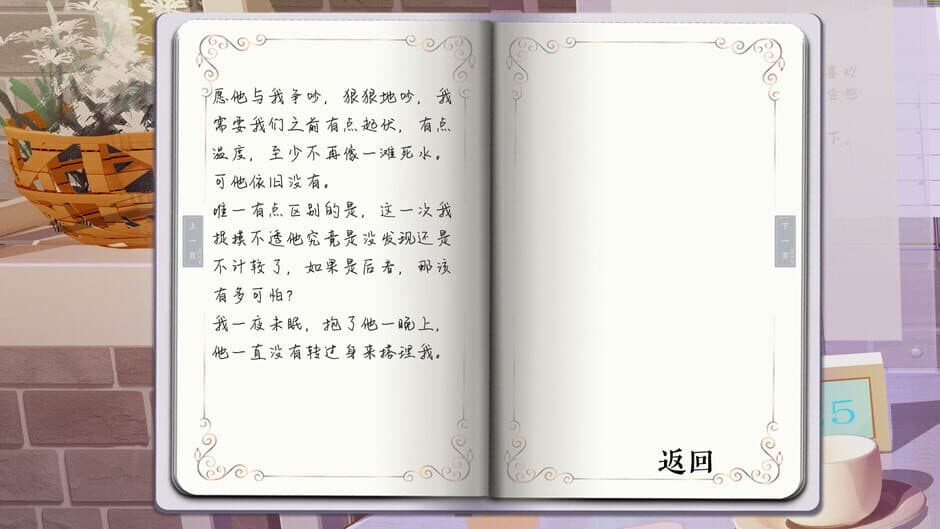 愿他与我争吵，狠狠地吵，我
需要我们之前有点起伏，有点
温度，至少不再像一滩死水。
可他依旧没有。
唯一有点区别的是，这一次我
捉摸不透他究竟是没发现还是
不计较了，如果是后者，那该
有多可怕？
我一夜未眠，抱了他一晚上，
他一直没有转过身来搭理我。
上一页
下一页
返回
喜欢
下。
5